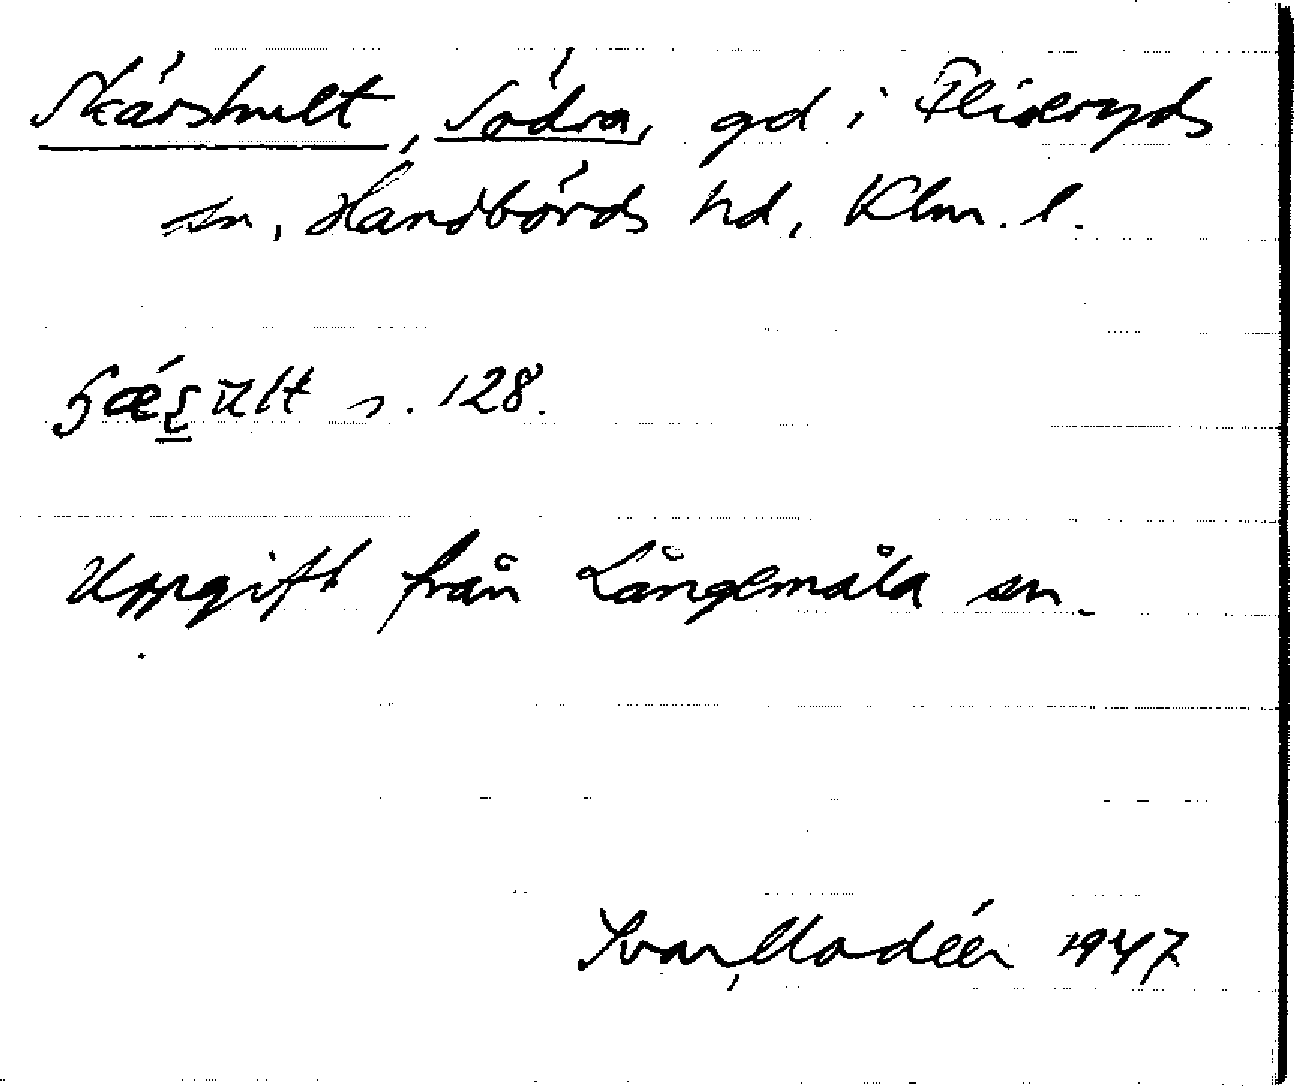 Skärshult, Södra, gd i Fliseryds
sn, Handbörds hd, Klm. l.
s. 128.
Uppgift från Långemåla sn.
Ivar Modéer 1947